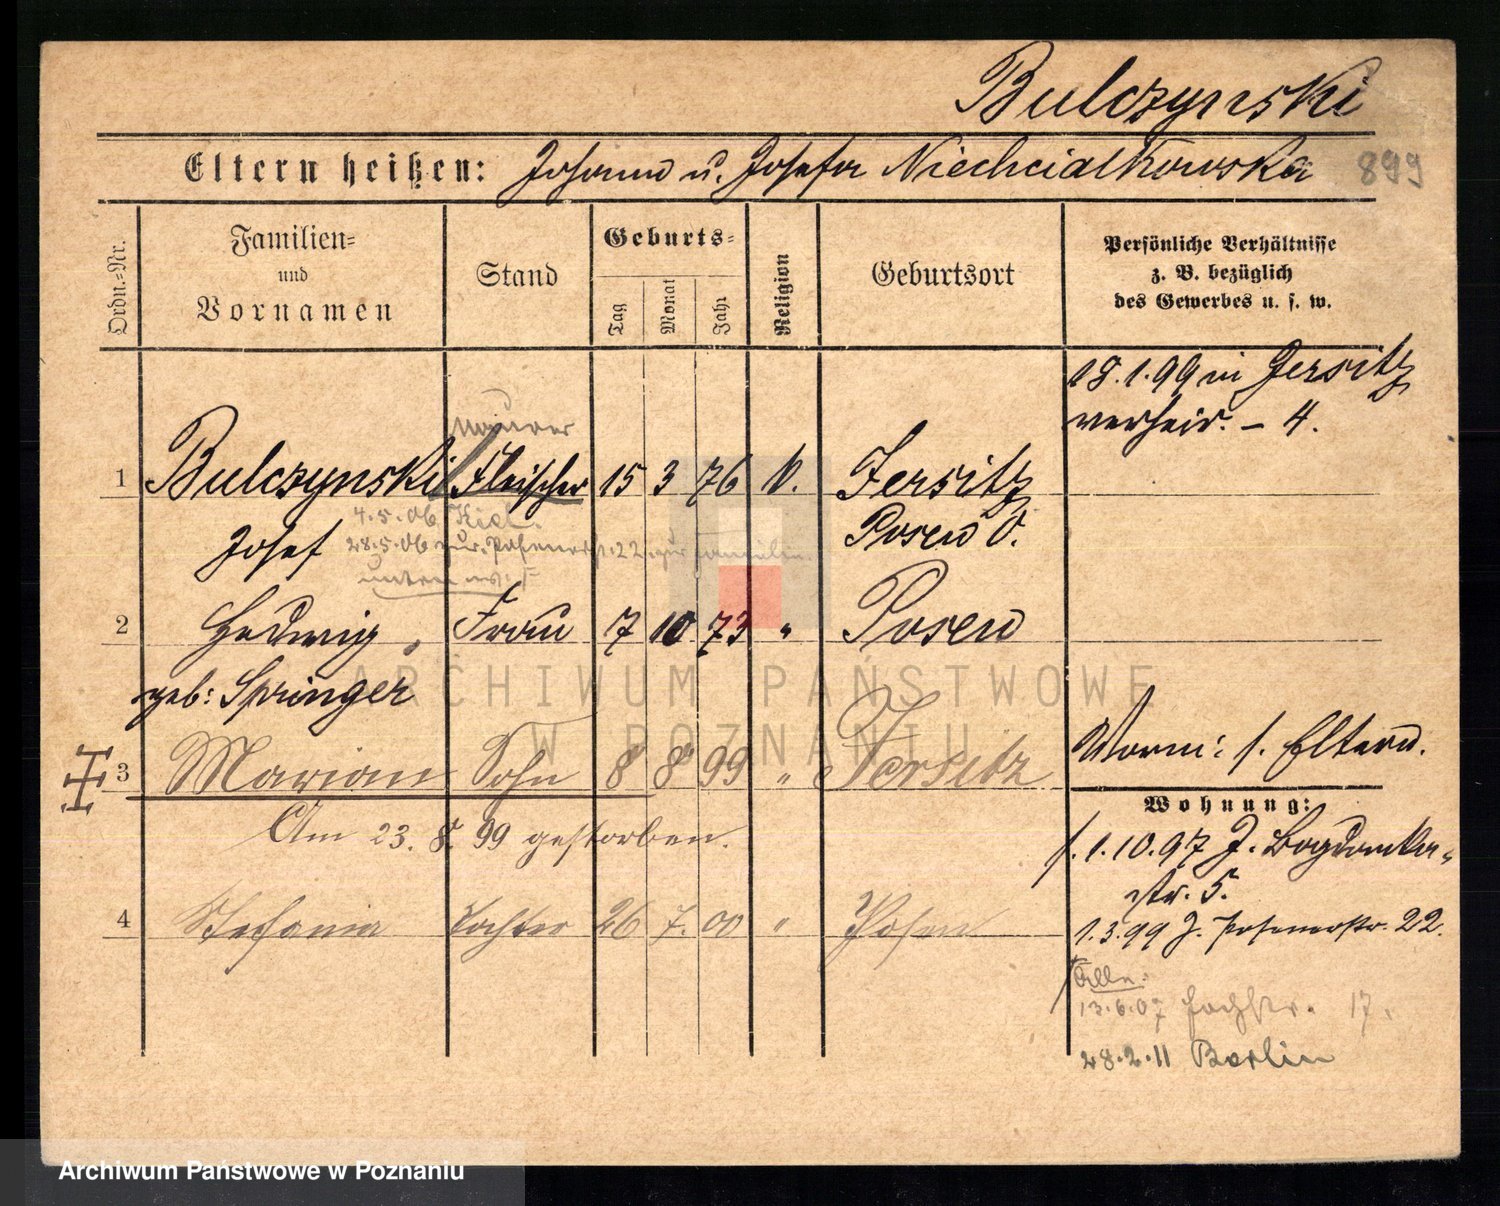 Bulczynski
Eltern heißen: Johann u. Josefa Niechcialkowska 899
Ordn.-Nr.
Familien-
und
Vornamen
Stand
Geburts-
Tag
Monat
Jahr
Religion
Geburtsort
Persönliche Verhältnisse
z. B. bezüglich
des Gewerbes u. s. w.
18.1.99 in Jersitz
verheir. - 4.
Maurer
1 Bulczynski Fleischer 15 3 76 k. Jersitz
4.5.06 Kiel.
Posen O.
Josef
28.5.06 zur. Posenerstr. 22 zur Familie.
unten
2 Hedwig, Frau 7 10 73 " Posen
geb: Springer
ARCHIWUM PAŃSTWOWE
W POZNANIU
Vorm: s. Eltern.
3 Marian Sohn 8 8 99 " Jersitz
Wohnung:
Am 23. 8. 99 gestorben.
1.10.97 J. Bogdanka-
str. 5.
4 Stefania Tochter 26 7. 00 " Posen
1.3.99 J. Posenerstr. 22.
Alle:
13.6.07 17.
28.2.11 Berlin
Archiwum Państwowe w Poznaniu